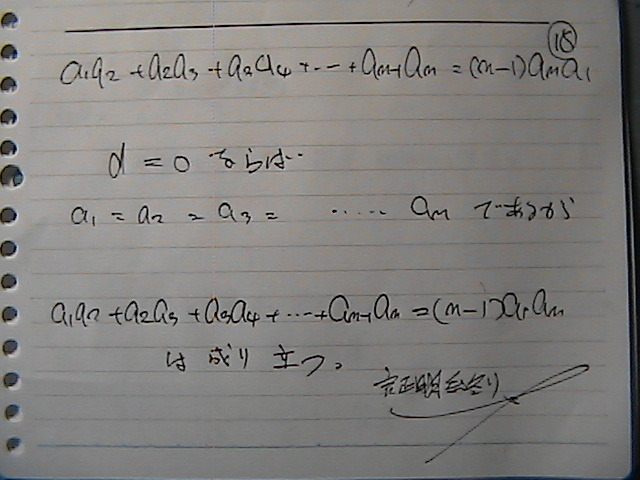 ⑱
a₁a₂ + a₂a₃ + a₃a₄ + ‥‥ + aₙ₋₁aₙ = (n-1)aₙa₁
d = 0 ならば‥
a₁ = a₂ = a₃ = ‥‥‥ aₙ であるから
a₁a₂ + a₂a₃ + a₃a₄ + ‥‥ + aₙ₋₁aₙ = (n-1)a₁aₙ
は 成り立つ。
証明終り